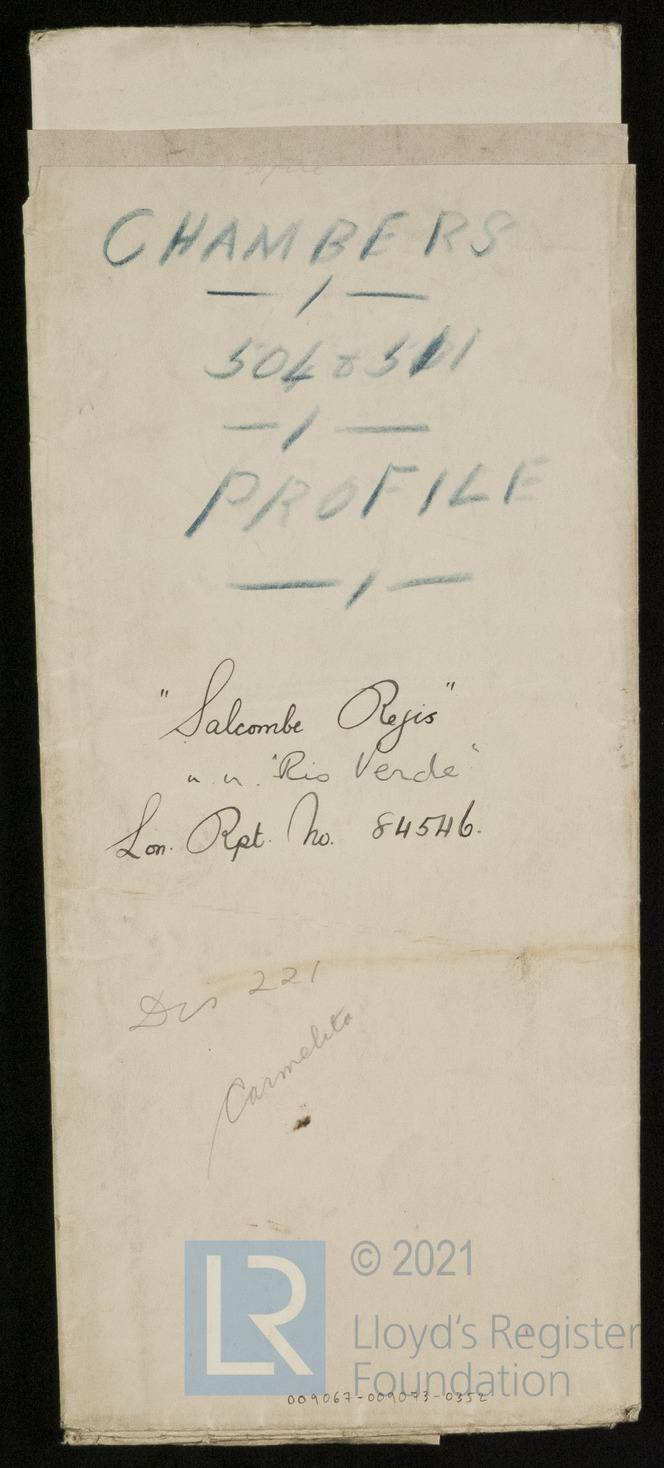 CHAMBERS
504 & 511
PROFILE
"Salcombe Regis"
"Rio Verde"
Lon. Rpt. No. 84546.
221
Carmelita
LR
© 2021
Lloyd's Register
Foundation
009067-009073-0352